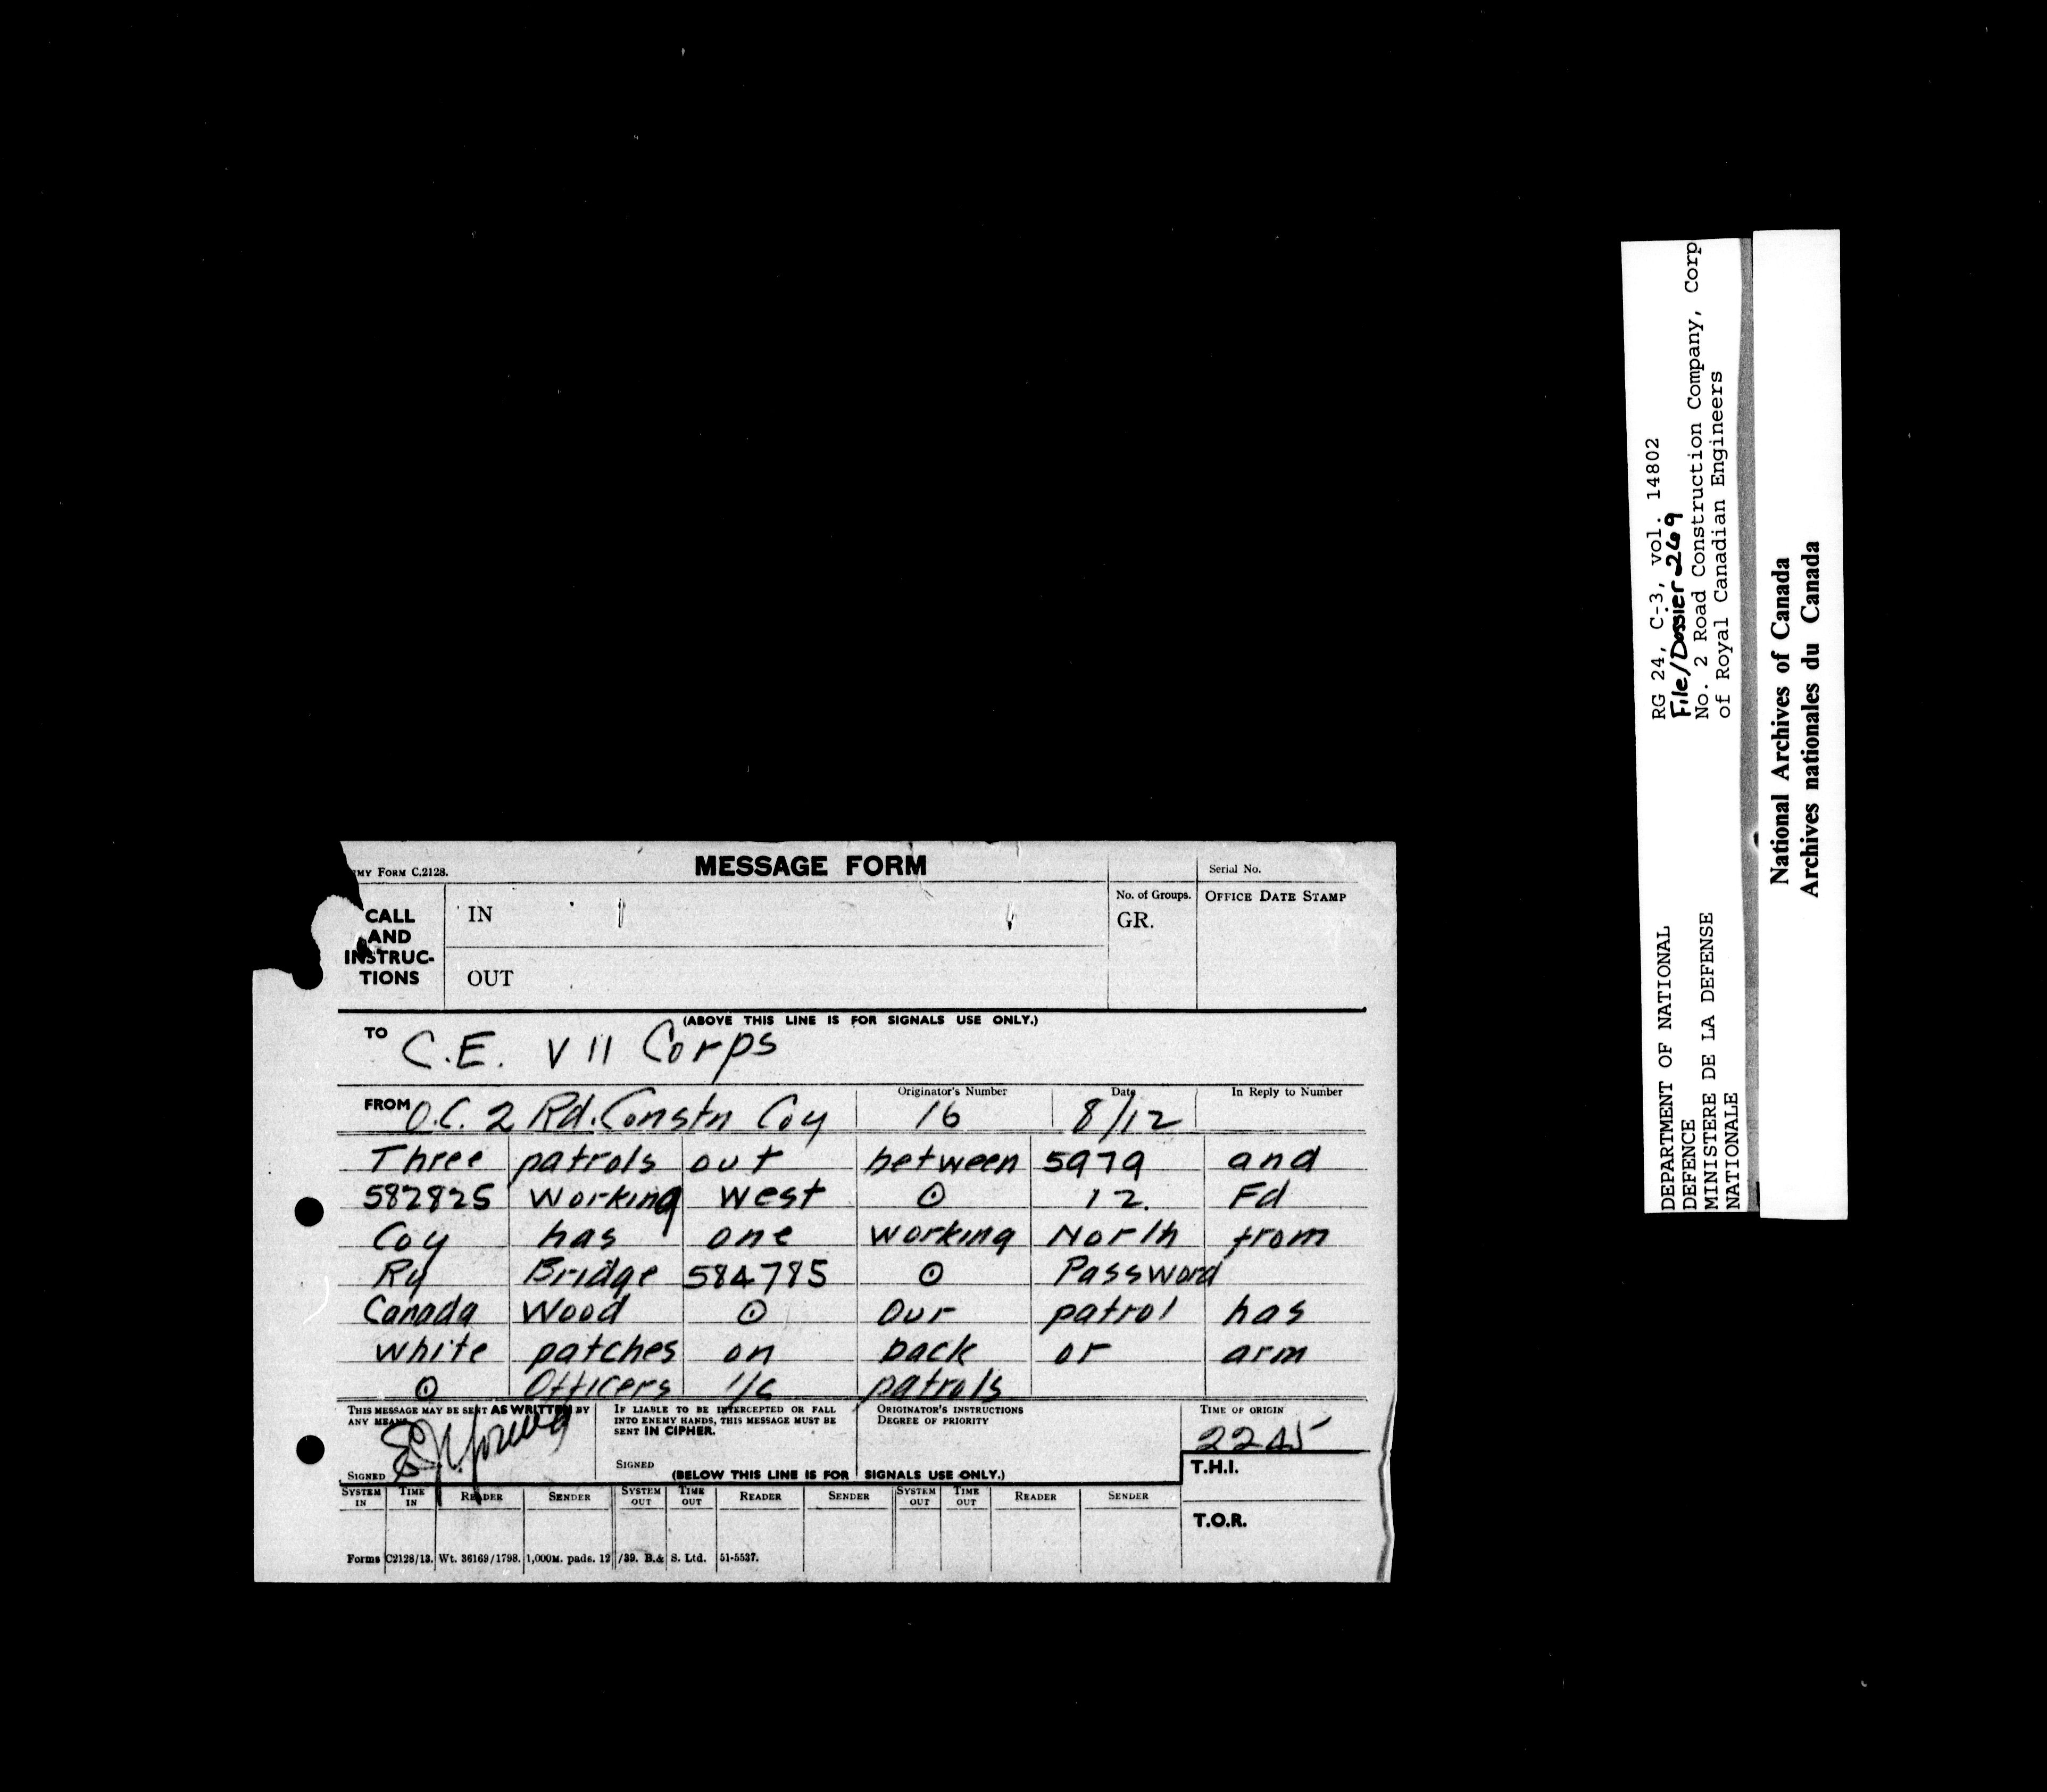 MY FORM C.2128.
MESSAGE FORM
Serial No.
CALL
AND
INSTRUC-
TIONS
IN
OUT
No. of Groups.
GR.
OFFICE DATE STAMP
(ABOVE THIS LINE IS FOR SIGNALS USE ONLY.)
TO C.E. VII Corps
FROM O.C. 2 Rd. Constn Coy
Originator's Number
16
Date
8/12
In Reply to Number
Three patrols out between 5979 and
582825 working west ⊙ 12. Fd
Coy has one working North from
Ry Bridge 584785 ⊙ Password
Canada Wood ⊙ Our patrol has
white patches on back or arm
⊙ Officers i/c patrols
THIS MESSAGE MAY BE SENT AS WRITTEN BY
ANY MEANS
SIGNED
IF LIABLE TO BE INTERCEPTED OR FALL
INTO ENEMY HANDS, THIS MESSAGE MUST BE
SENT IN CIPHER.
SIGNED
ORIGINATOR'S INSTRUCTIONS
DEGREE OF PRIORITY
TIME OF ORIGIN
2245
(BELOW THIS LINE IS FOR SIGNALS USE ONLY.)
T.H.I.
T.O.R.
SYSTEM IN TIME IN READER SENDER SYSTEM OUT TIME OUT READER SENDER SYSTEM OUT TIME OUT READER SENDER
Forms C2128/13. Wt. 36169/1798. 1,000M. pads. 12/39. B.& S. Ltd. 51-5537.
DEPARTMENT OF NATIONAL
DEFENCE
MINISTERE DE LA DEFENSE
NATIONALE
RG 24, C-3, vol. 14802
File/Dossier 269
No. 2 Road Construction Company, Corp
of Royal Canadian Engineers
National Archives of Canada
Archives nationales du Canada